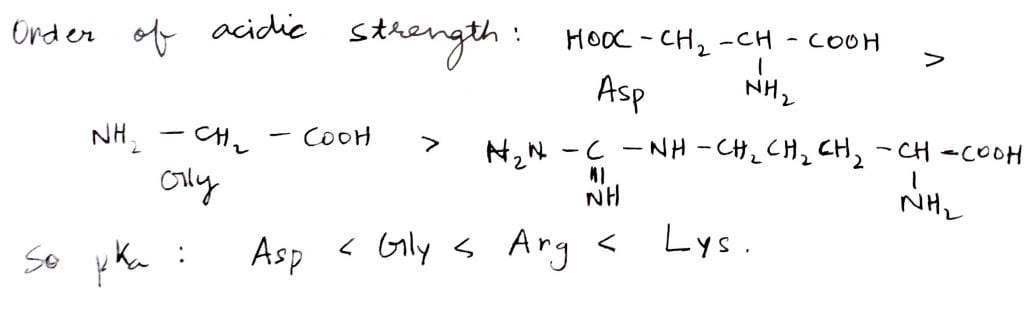 Order of acidic strength : HOOC - CH2 - CH - COOH >
Asp NH2
NH2 - CH2 - COOH > H2N - C - NH - CH2 CH2 CH2 - CH - COOH
Gly NH NH2
So pKa : Asp < Gly < Arg < Lys .